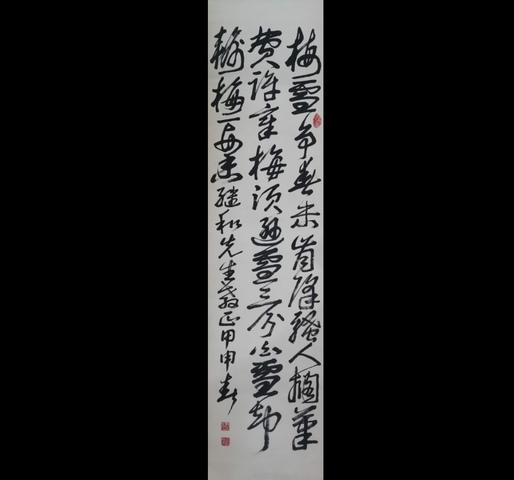 梅雪争春未肯降骚人搁笔
费评章梅须逊雪三分白雪却
输梅一段香继和先生教正甲申春